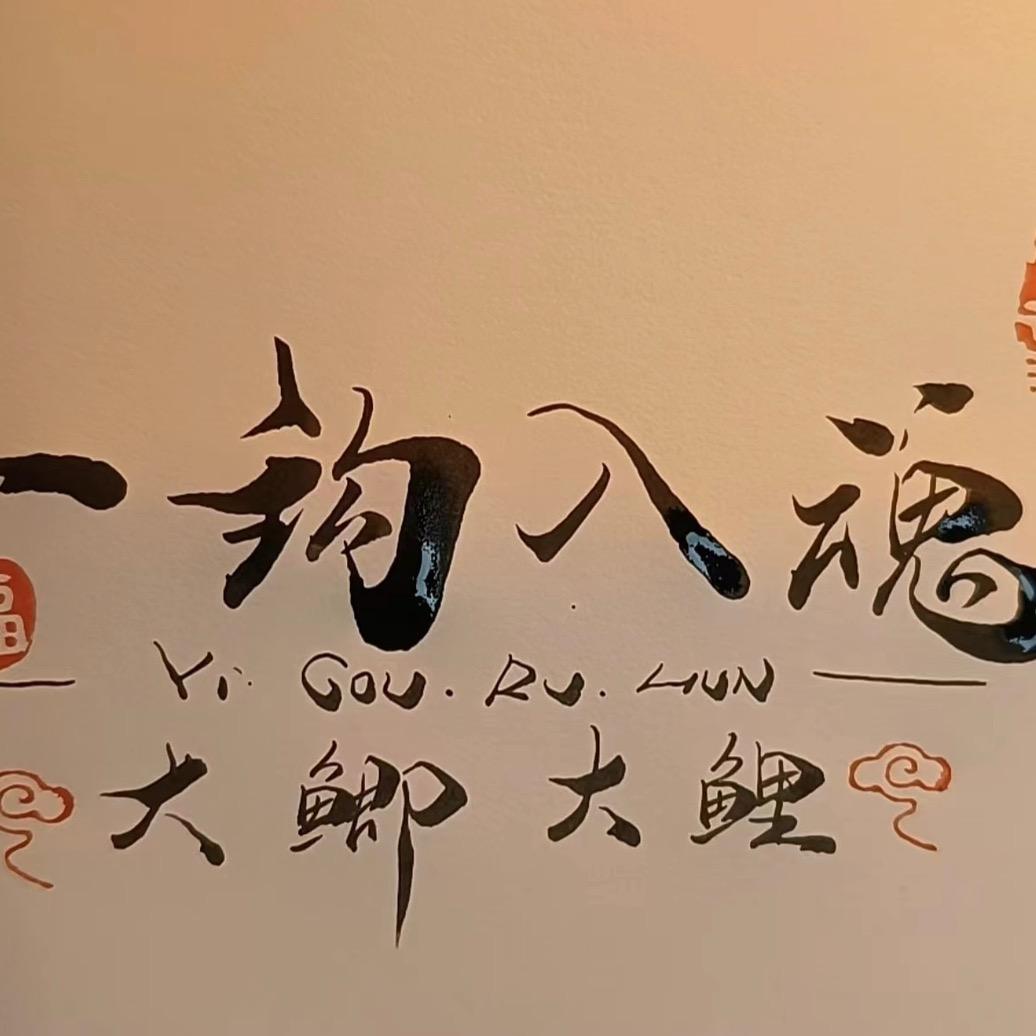 一钩入魂
福
Yi. GOU. RU. HUN
大鲫大鲤